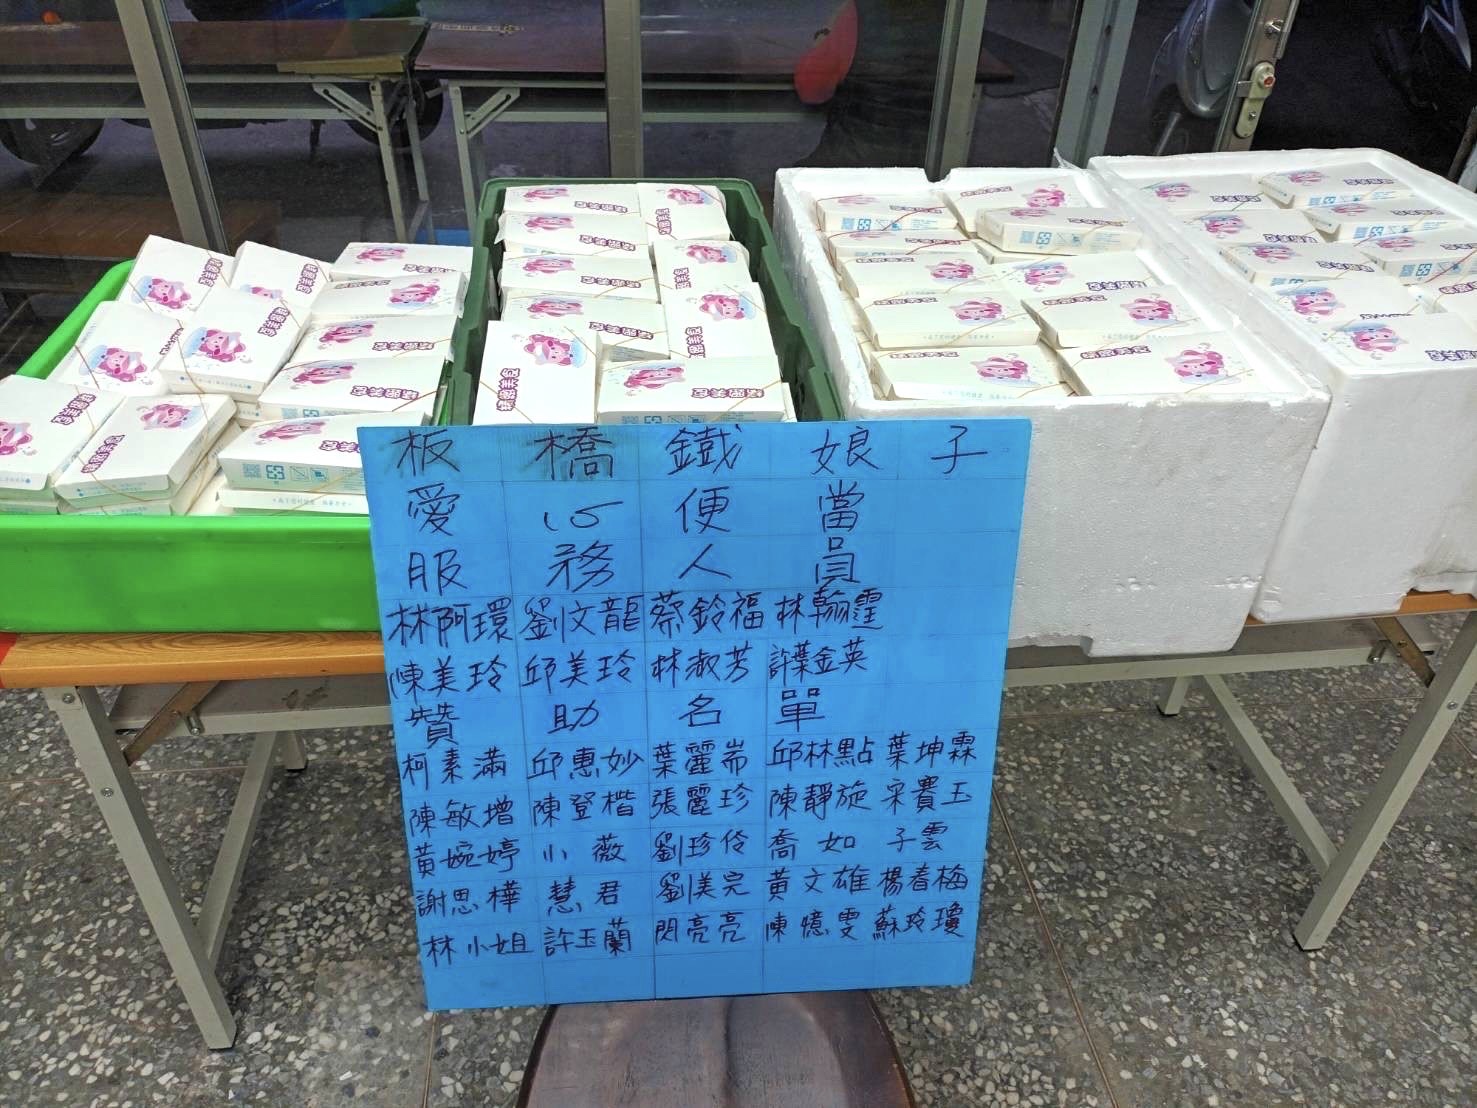 板橋鐵娘子
愛心便當
服務人員
林阿環 劉文龍 蔡鈴福 林翰霆
陳美玲 邱美玲 林淑芳 許葉金英
贊助名單
柯素滿 邱惠妙 葉麗崙 邱林點 葉坤霖
陳敏增 陳登楷 張麗珍 陳靜旋 宋賽玉
黃婉婷 小薇 劉珍伶 喬如 子雲
謝思樺 慧君 劉美完 黃文雄 楊春梅
林小姐 許玉蘭 閃亮亮 陳憶雯 蘇玲瓊